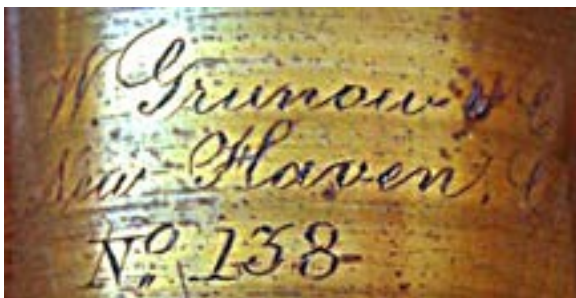 W Grunow & C
New Haven, C
No. 138